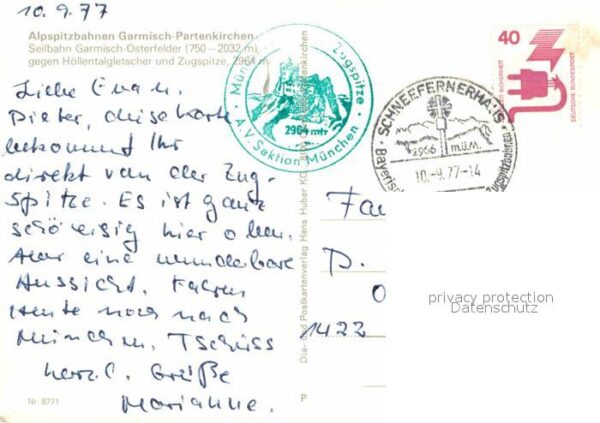 10.9.77
Alpspitzbahnen Garmisch-Partenkirchen
Seilbahn Garmisch-Osterfelder (750 – 2032 m)
gegen Höllentalgletscher und Zugspitze, 2964 m
Liebe Eva u.
Dieter, diese Karte
bekommt Ihr
direkt von der Zug-
spitze. Es ist ganz
schön eisig hier oben.
Aber eine wunderbare
Aussicht. Fahren
heute noch nach
München. Tschüss
herzl. Grüße
Marianne.
Nr. 8771
Zugspitze
2964 mtr
A.V. Sektion München
Dia- und Postkartenverlag Hans Huber KG
P
SCHNEEFERNERHAUS
2956 m.ü.M.
10.-9.77-14
Zugspitzbahnen
40
DEUTSCHE BUNDESPOST
Fa
D.
1422
privacy protection
Datenschutz